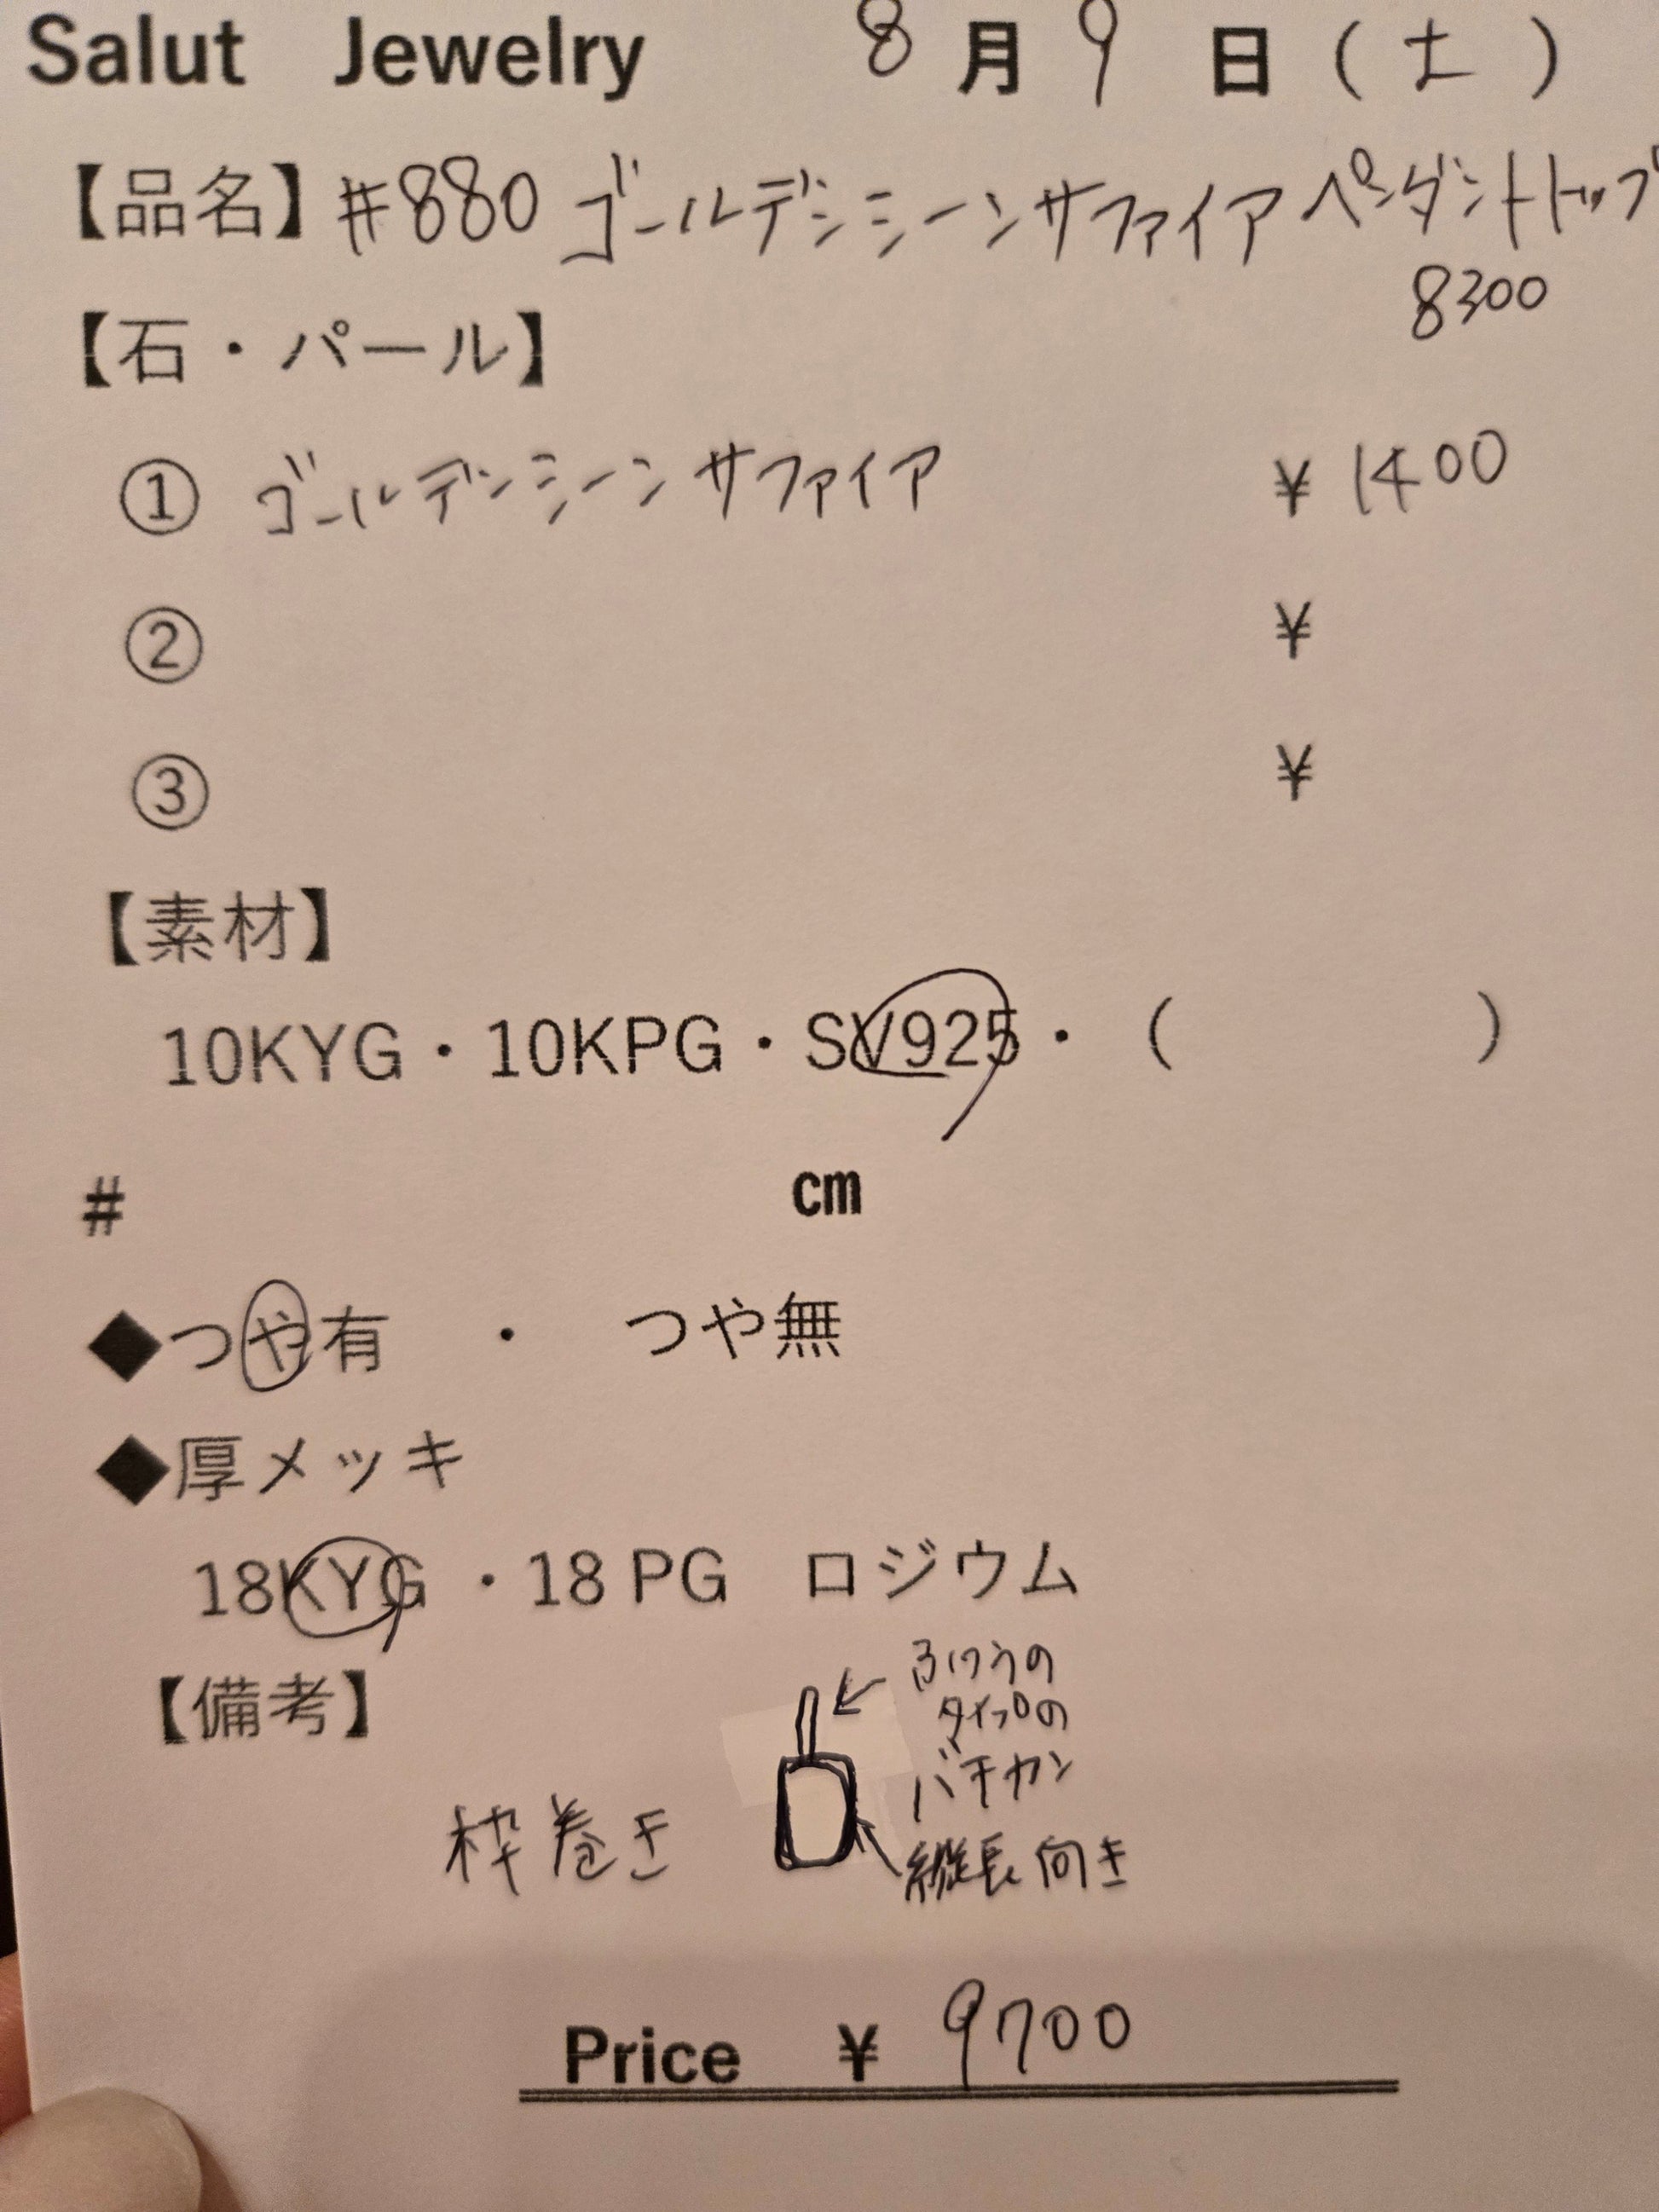 Salut Jewelry 8月9日(土)
【品名】#880 ゴールデンシーンサファイアペンダントトップ
8300
【石・パール】
① ゴールデンシーンサファイア ¥1400
② ¥
③ ¥
【素材】
10KYG・10KPG・SV925・( )
# cm
◆つや有 ・ つや無
◆厚メッキ
18KYG ・18 PG ロジウム
【備考】
ふつうの
タイプの
バチカン
枠巻き
縦長向き
Price ¥ 9700